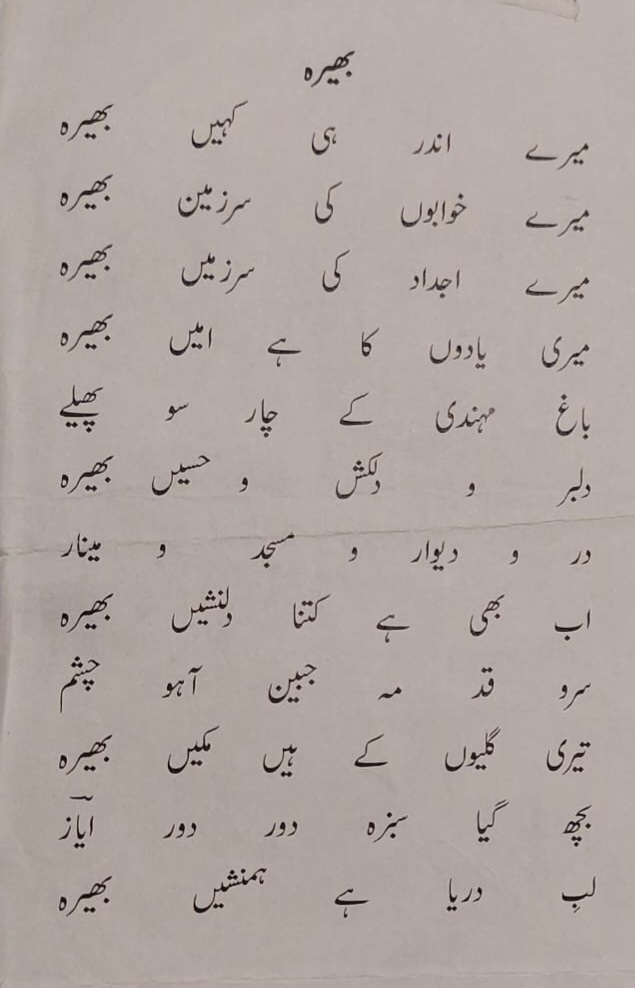 بھیرہ
میرے اندر ہی کہیں بھیرہ
میرے خوابوں کی سرزمین بھیرہ
میرے اجداد کی سرزمیں بھیرہ
میری یادوں کا ہے امیں بھیرہ
باغ مہندی کے چار سو پھیلے
دلبر و دلکش و حسیں بھیرہ
در و دیوار و مسجد و مینار
اب بھی ہے کتنا دلنشیں بھیرہ
سرو قد مہ جبین آہو چشم
تیری گلیوں کے ہیں مکیں بھیرہ
بچھ گیا سبزہ دور دور ایاز
لبِ دریا ہے ہمنشیں بھیرہ